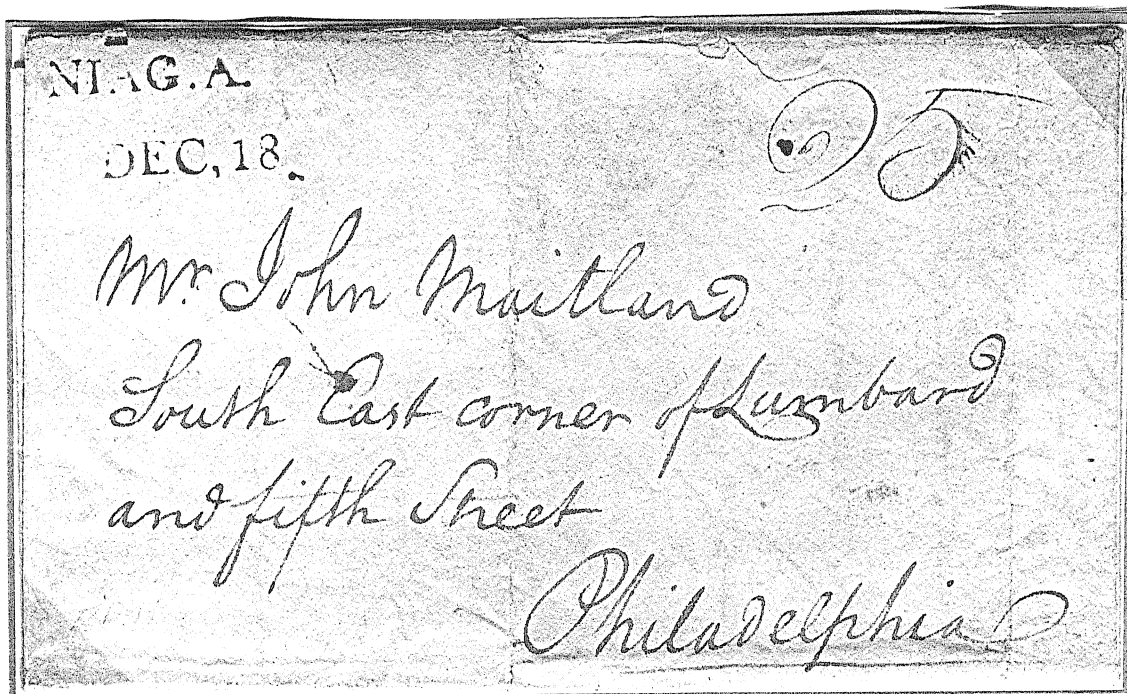 NIAG.A.
DEC, 18
25
Mr. John Maitland
South East corner of Lumbard
and fifth Street
Philadelphia